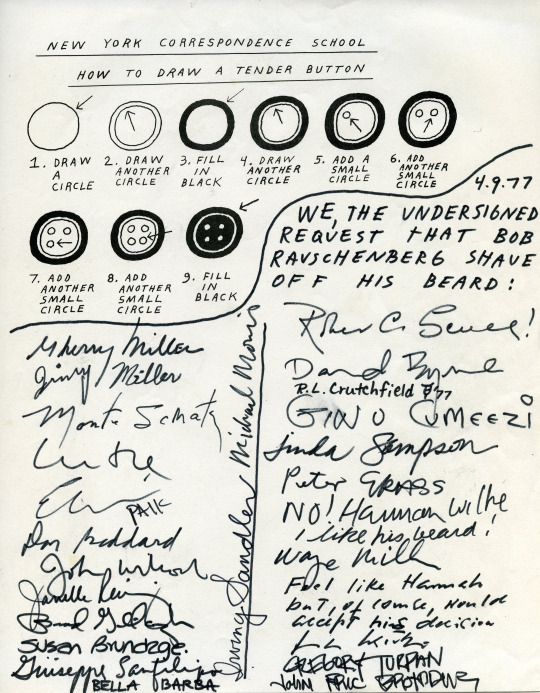 NEW YORK CORRESPONDENCE SCHOOL
HOW TO DRAW A TENDER BUTTON
1. DRAW A CIRCLE
2. DRAW ANOTHER CIRCLE
3. FILL IN BLACK
4. DRAW ANOTHER CIRCLE
5. ADD A SMALL CIRCLE
6. ADD ANOTHER SMALL CIRCLE
7. ADD ANOTHER SMALL CIRCLE
8. ADD ANOTHER SMALL CIRCLE
9. FILL IN BLACK
4.9.77
WE, THE UNDERSIGNED
REQUEST THAT BOB
RAUSCHENBERG SHAVE
OFF HIS BEARD:
Sherry Miller
Jinny Miller
Monte
PAIK
Don
John Wilcock
Janelle
Susan Brundage
Giuseppe
BELLA BARBA
Irving Sandler Michael Morris
David Byrne
R.L. Crutchfield 77
GINO CUMEEZI
Linda Sampson
Peter GRASS
NO! Hannah Wilke
I like his beard!
Feel like Hannah
but, of course, would
accept his decision
GREGORY
JOHN ERIC